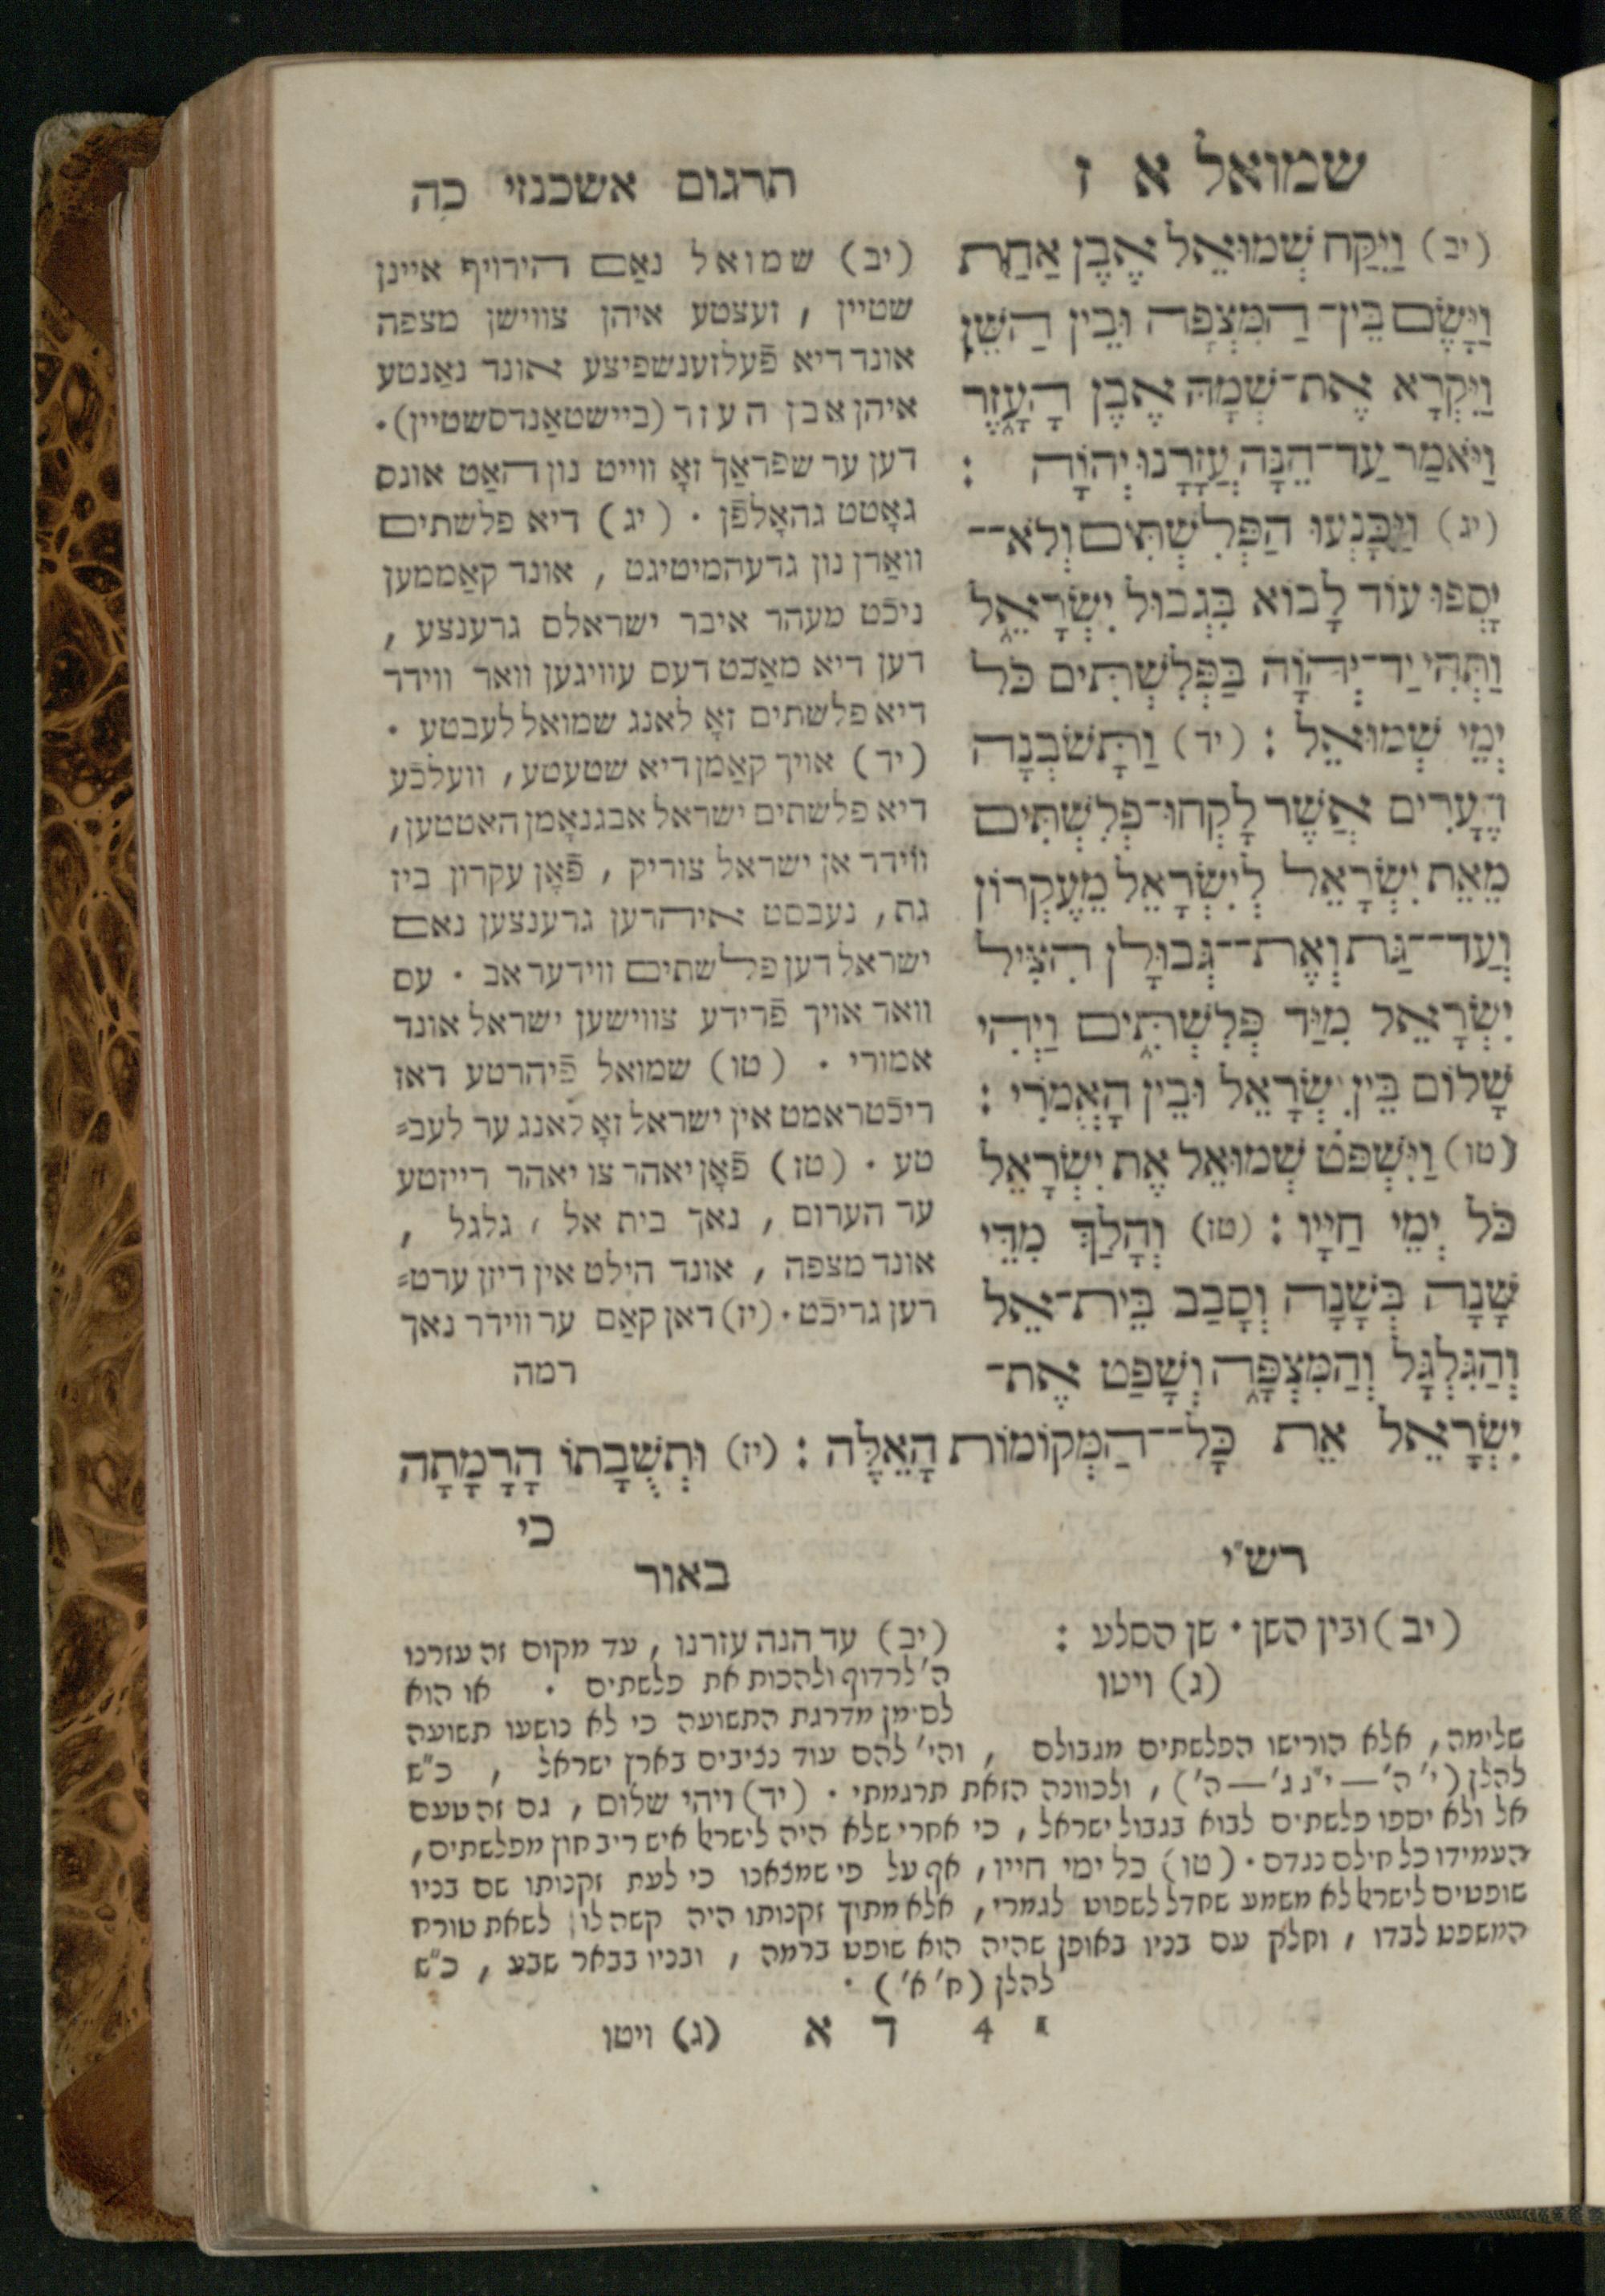 שמואל א ז
(יב) וַיִּקַּח שְׁמוּאֵל אֶבֶן אַחַת
וַיָּשֶׂם בֵּין־הַמִּצְפָּה וּבֵין הַשֵּׁן
וַיִּקְרָא אֶת־שְׁמָהּ אֶבֶן הָעָזֶר
וַיֹּאמַר עַד־הֵנָּה עֲזָרָנוּ יְהוָֹה :
(יג) וַיִּכָּנְעוּ הַפְּלִשְׁתִּים וְלֹא־־
יָסְפוּ עוֹד לָבוֹא בִּגְבוּל יִשְׂרָאֵל
וַתְּהִי יַד־יְהוָֹה בַּפְּלִשְׁתִּים כֹּל
יְמֵי שְׁמוּאֵל : (יד) וַתָּשֹׁבְנָה
הֶעָרִים אֲשֶׁר לָקְחוּ־פְלִשְׁתִּים
מֵאֵת יִשְׂרָאֵל לְיִשְׂרָאֵל מֵעֶקְרוֹן
וְעַד־־גַּת וְאֶת־־גְּבוּלָן הִצִּיל
יִשְׂרָאֵל מִיַּד פְּלִשְׁתִּים וַיְהִי
שָׁלוֹם בֵּין יִשְׂרָאֵל וּבֵין הָאֱמֹרִי :
(טו) וַיִּשְׁפֹּט שְׁמוּאֵל אֶת יִשְׂרָאֵל
כֹּל יְמֵי חַיָּיו : (טז) וְהָלַךְ מִדֵּי
שָׁנָה בְּשָׁנָה וְסָבַב בֵּית־אֵל
וְהַגִּלְגָּל וְהַמִּצְפָּה וְשָׁפַט אֶת־
יִשְׂרָאֵל אֵת כָּל־־הַמְּקוֹמוֹת הָאֵלֶּה : (יז) וּתְשֻׁבָתוֹ הָרָמָתָה
כי
תרגום אשכנזי כה
(יב) שמואל נאַם הירויף איינן
שטיין , זעצטע איהן צווישן מצפה
אונד דיא פֿעלזענשפיצע אונד נאַנטע
איהן אבן העזר (ביישטאַנדסשטיין) .
דען ער שפראַך זאָ ווייט נון האַט אונס
גאָטט געהאָלפֿן . (יג) דיא פלשתים
וואַרן נון גדעהמיטיגט , אונד קאַממען
ניכֿט מעהר איבר ישראלס גרענצע ,
דען דיא מאַכֿט דעס עוויגען וואר ווידר
דיא פלשתים זאָ לאנג שמואל לעבטע .
(יד) אויך קאַמן דיא שטעטע , וועלכֿע
דיא פלשתים ישראל אבגנאָמן האטטען,
ווידר אן ישראל צוריק , פֿאָן עקרון ביז
גת, נעבסט איהרען גרענצען נאם
ישראל דען פלשתים ווידער אב . עס
וואר אויך פֿרידע צווישען ישראל אונד
אמורי . (טו) שמואל פֿיהרטע דאז
ריכֿטראמט אין ישראל זאָ לאנג ער לעב=
טע . (טז) פֿאָן יאהר צו יאהר רייזטע
ער הערום , נאך בית אל , גלגל ,
אונד מצפה , אונד הילט אין דיזן ערט=
רען גריכֿט . (יז) דאן קאַם ער ווידר נאך
רמה
רש״י
(יב) ובין השן . שן הסלע :
(ג) ויטו
באור
(יב) עד הנה עזרנו , עד מקום זה עזרנו
ה' לרדוף ולהכות את פלשתים . או הוא
לסימן מדרגת התשועה כי לא נושעו תשועה
שלימה, אלא הורישו הפלשתים מגבולם , והי' להם עוד נציבים בארץ ישראל , כ״ש
להלן (י' ה' — י״ג ג' — ה') , ולכוונה הזאת תרגמתי . (יד) ויהי שלום , גם זה טעם
אל ולא יספו פלשתים לבוא בגבול ישראל , כי אחרי שלא היה לישראל איש ריב חוץ מפלשתים,
העמידו כל חילם נגדם . (טו) כל ימי חייו , אף על פי שמצאנו כי לעת זקנותו שם בניו
שופטים לישראל לא משמע שחדל לשפוט לגמרי, אלא מתוך זקנותו היה קשה לו לשאת טורח
המשפט לבדו , וחלק עם בניו באופן שהיה הוא שופט ברמה , ובניו בבאר שבע , כ״ש
להלן (ח' א') .
4 ד א (ג) ויטו